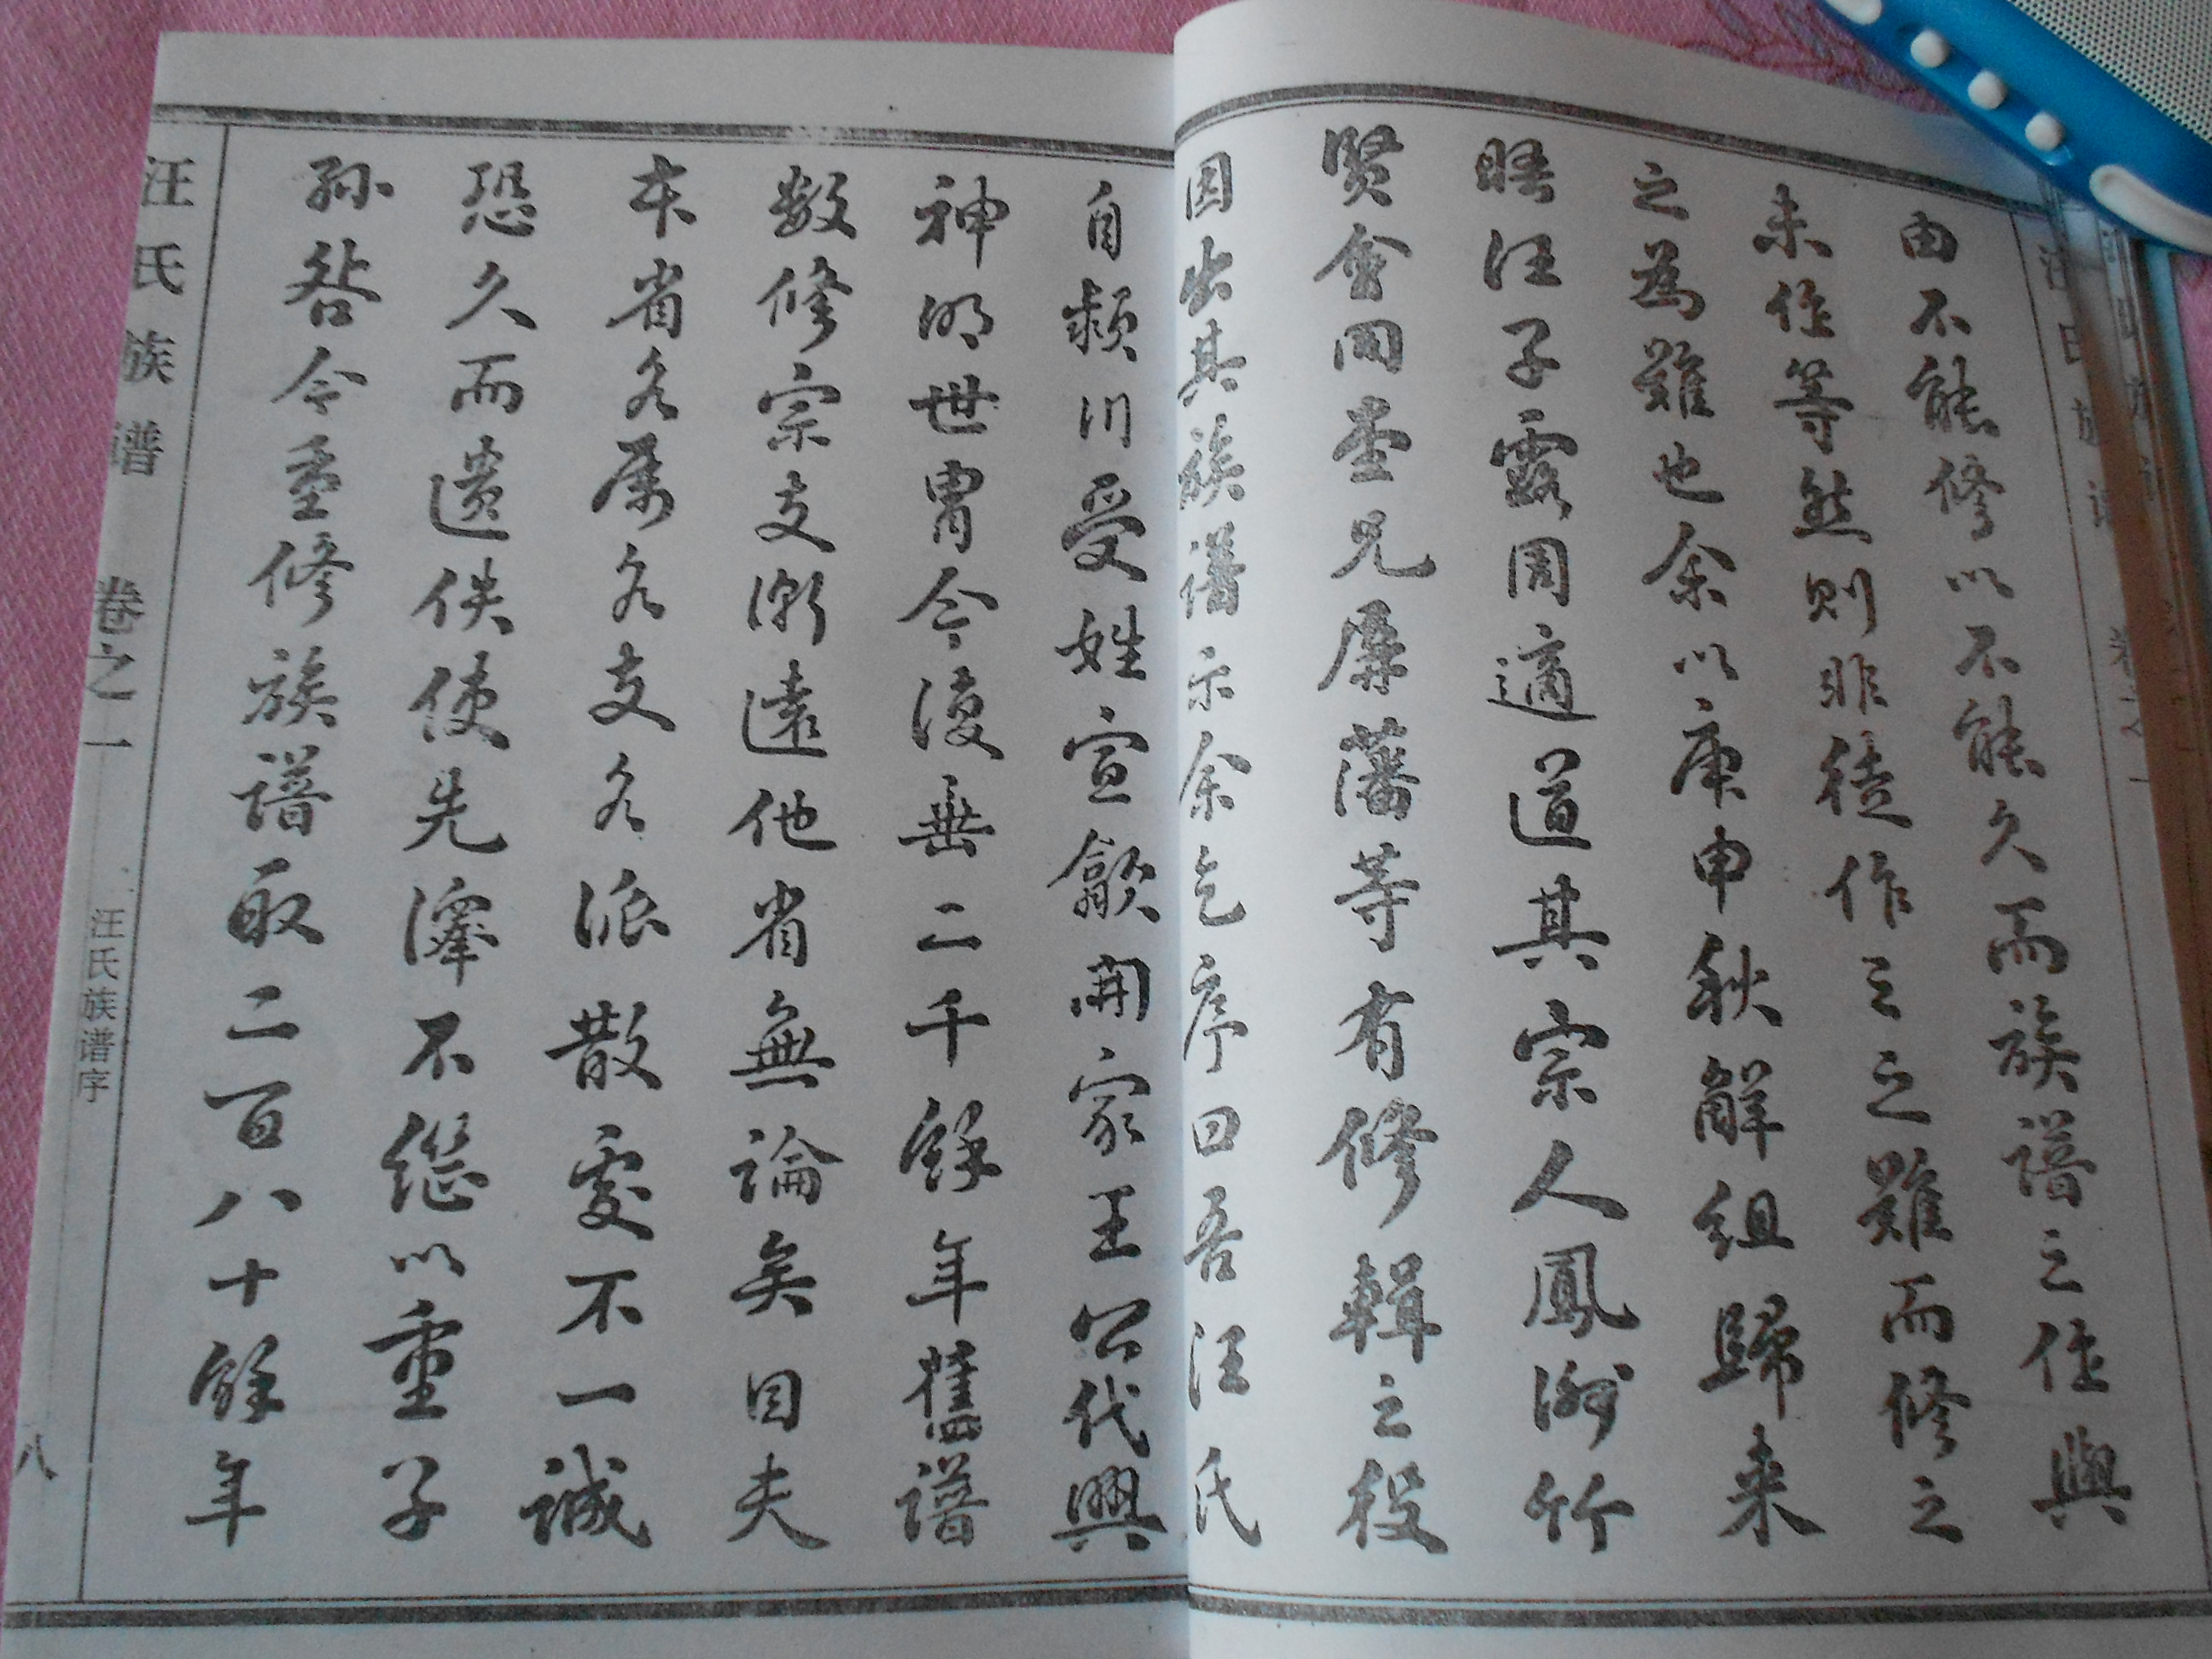 由不能修以不能久而族譜之佳與
未佳等然則非徒作之之難而修之
之為難也余以庚申秋解組歸来
晤汪子露周適道其宗人鳳洲竹
賢會同堂兄屏藩等有修輯之役
因出其族譜示余乞序曰吾汪氏
自潁川受姓宣歙開家王公代興
神明世胄今復垂二千餘年舊譜
數修宗支漸遠他省無論矣目夫
本省各属各支各派散處不一誠
恐久而遺佚使先澤不継以重子
孫咎今重修族譜取二百八十餘年
汪氏族谱 卷之一 汪氏族谱序 八